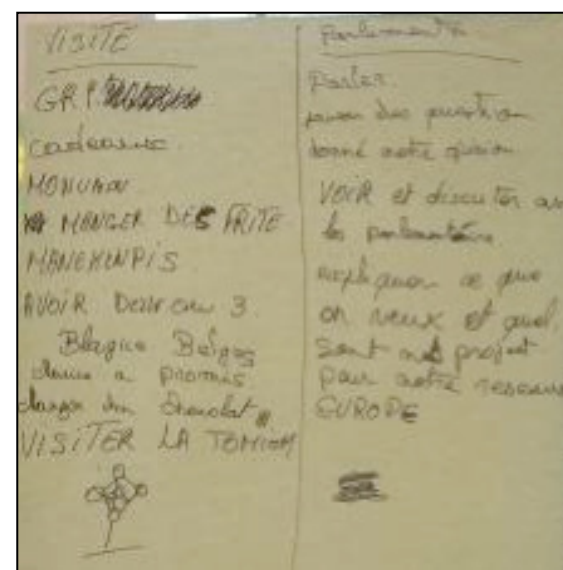 VISITE
GR P.
cadeaux.
MONUMON
MANGER DES FRITE
MANEKENPIS
AVOIR Deux ou 3.
Blague Belges
promis.
chocolat
VISITER LA TOMIOM
Parlement
Parler.
poser des question
donné notre opinion
VOIR et discuter av
les parlementaire
expliquer ce que
on veux et quel
sont nos projet
pour notre reseau
EUROPE